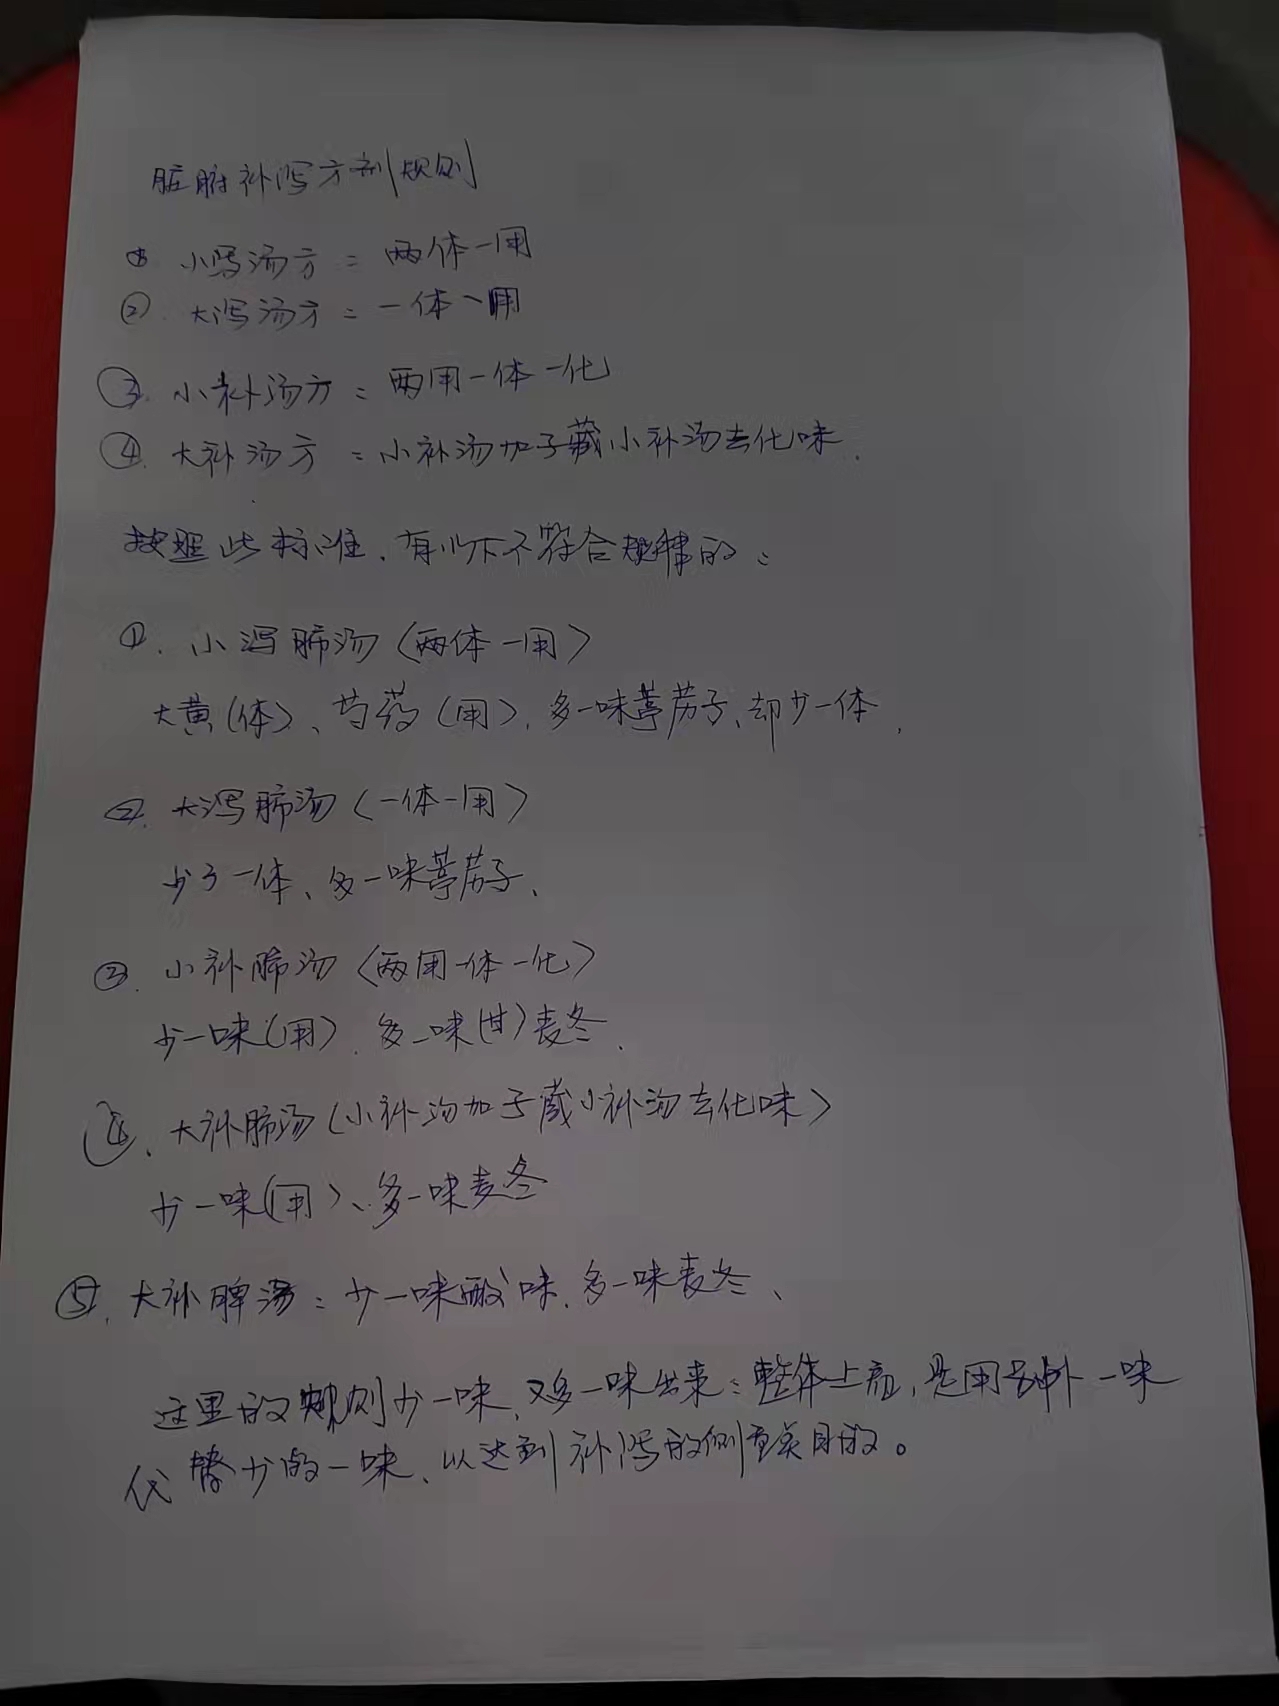 脏腑补泻方剂规则
① 小写汤方 = 两体一用
②. 大泻汤方 = 一体一用
③. 小补汤方 = 两用一体一化
④. 大补汤方 = 小补汤加子藏小补汤去化味.
按照此标准.有以下不符合规律的:
①. 小泻肺汤(两体一用)
大黄(体)、芍药(用),多一味葶苈子、却少一体.
②. 大泻肺汤(一体一用)
少了一体、多一味葶苈子、
③. 小补肺汤(两用一体一化)
少一味(用).多一味(甘)麦冬.
④、大补肺汤(小补汤加子藏小补汤去化味)
少一味(用)、多一味麦冬
⑤. 大补脾汤: 少一味酸味.多一味麦冬、
这里的规则少一味,又多一味出来:整体上看,是用另外一味
代替少的一味、以达到补泻的侧重类目的。